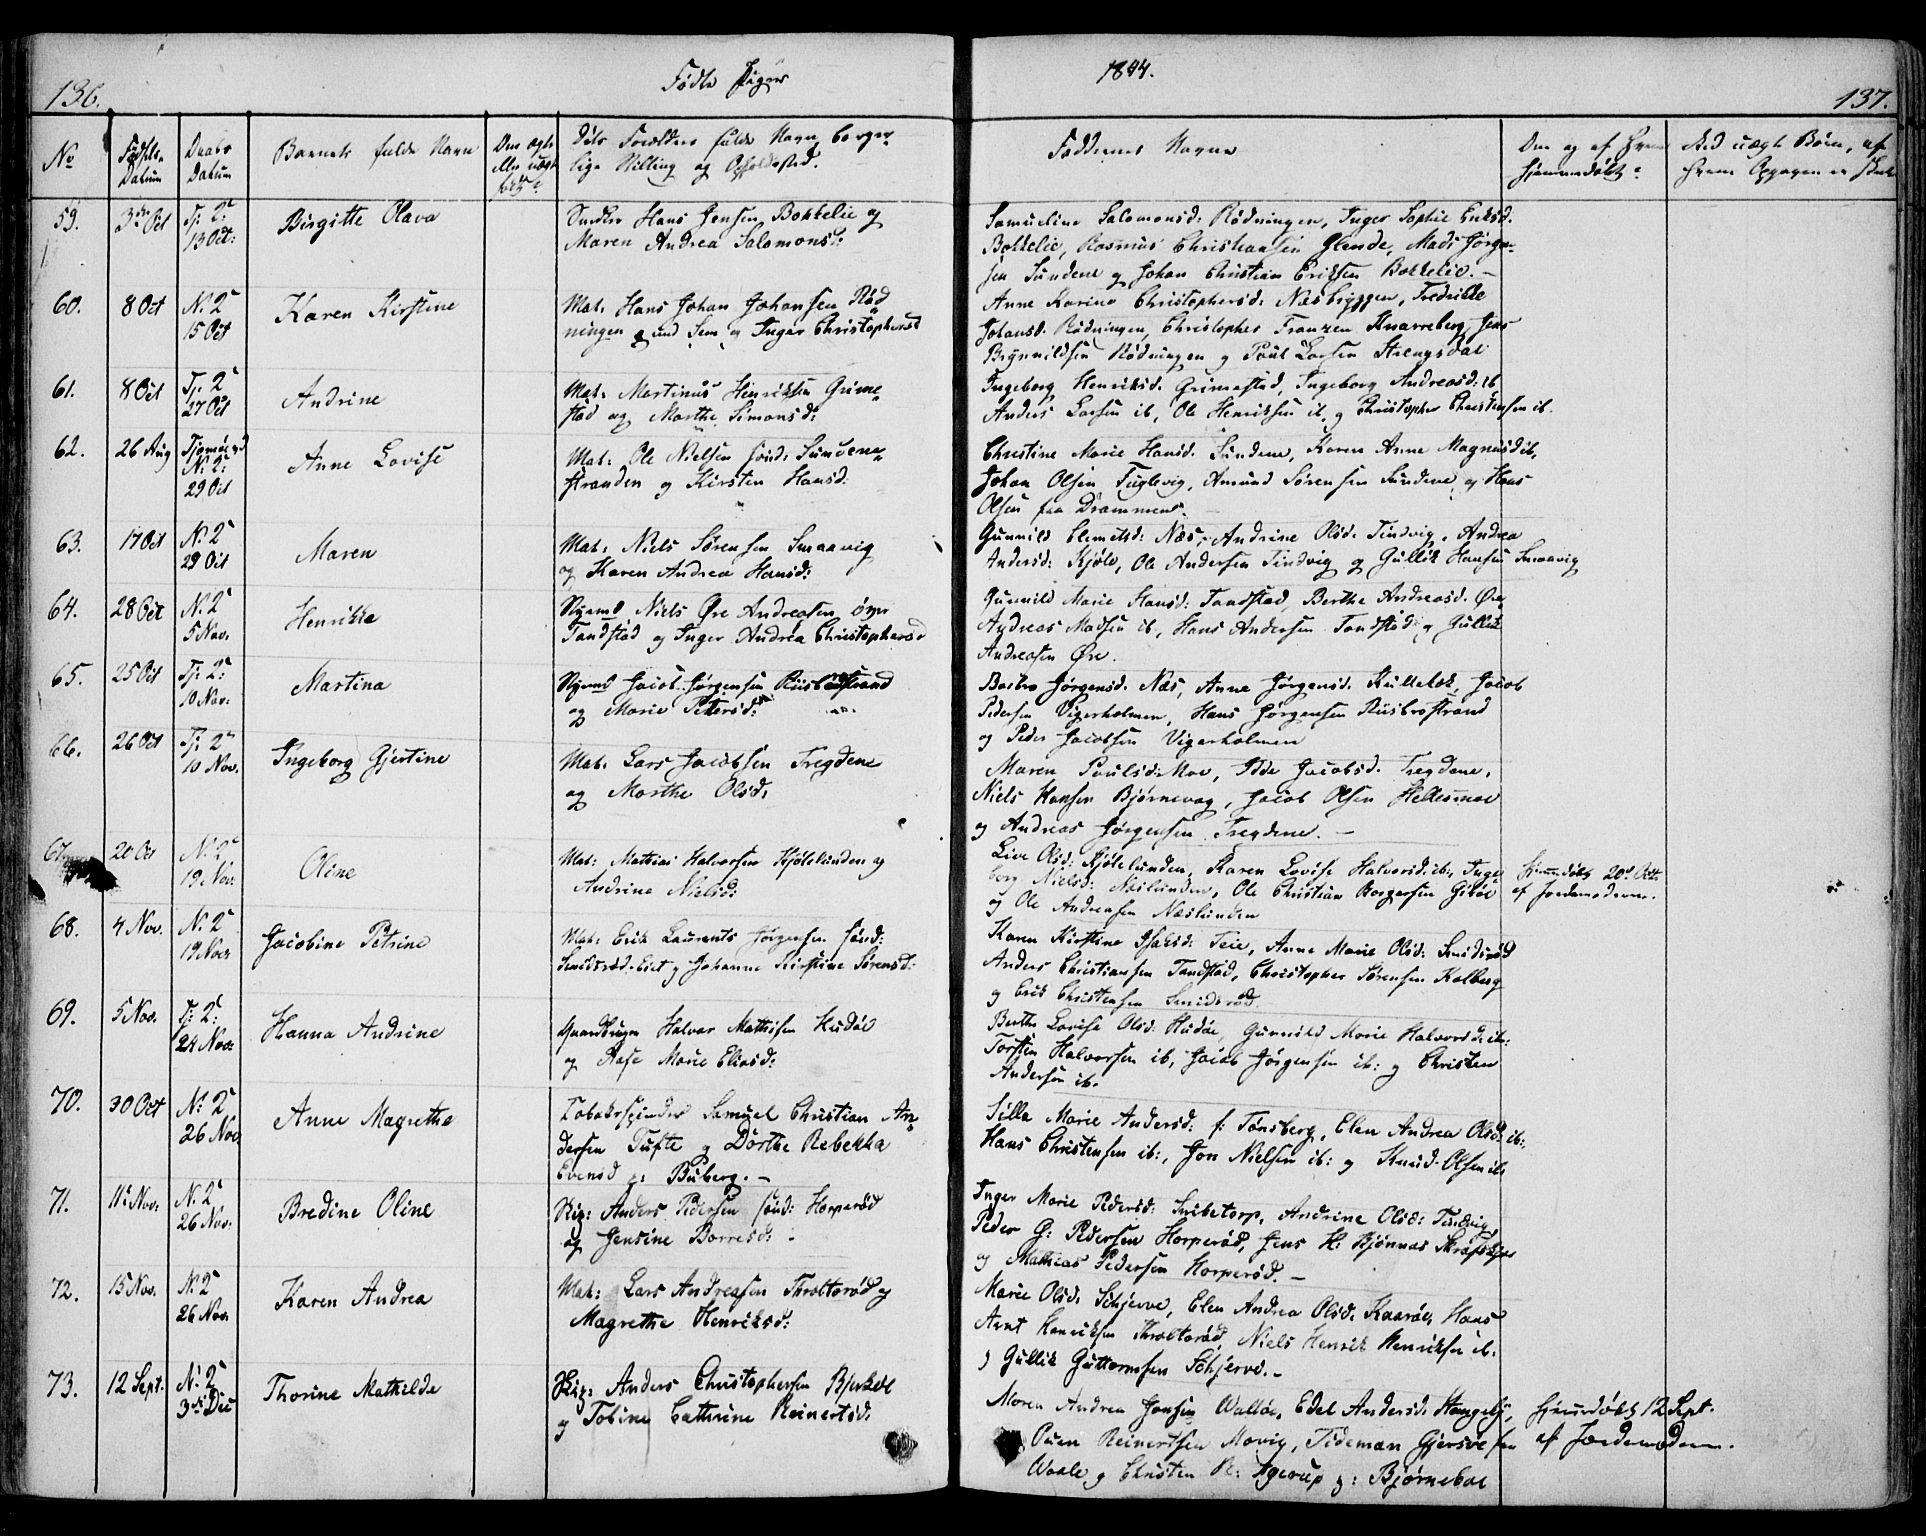 136.
Fødte Piger
1844.
137.
No
Fødsels Datum
Daabs Datum
Barnets fulde Navn
Den ægte eller uægte født?
Dets Forældres fulde Navn, borger-
lige Stilling og Opholdssted.
Faddernes Navne
Den og af Hvem
hjemmedøbt?
Ved uægte Børn, af
hvem Opgaven er skeet
59.
3die Oct
Tj: 2:
13 Oct:
Birgitte Olava
Hans Jensen Bokkelie og
Maren Andrea Salomonsd:
Samueline Salomonsd: Rødningen, Inger Sophie Eriksd.
Bokkelie, Rasmus Christiansen Glende, Mads Jørgen-
sen Sundene og Johan Christian Eriksen Bokkelie. –
60.
8 Oct
N. 2
15 Oct
Karen Kirstine
Mat. Hans Johan Johansen Rød
ningen und Sem og Inger Christophersd
Anne Karine Christophersd: Næsbryggen, Fredrikke
Johansd. Rødningen, Christopher Franzen Knarreberg, Jens
Brynnildsen Rødningen og Poul Larsen Stengsdal
61.
8 Oct
Tj: 2
27 Oct
Andrine
Mat. Martinus Henriksen Grime
stad og Marthe Simonsd:
Ingeborg Henriksd. Grimestad, Ingeborg Andreasd: ib
Anders Larsen ib, Ole Henriksen ib. og Christopher Christensen ib.
62.
26 Aug
N. 2:
29 Oct
Anne Lovise
Mat: Ole Nielsen Sundene
stranden og Kirsten Hansd:
Christine Marie Hansd. Sundene, Karen Anne Magnusd ib,
Johan Olsen Fuglevig, Amund Sørensen Sundene og Hans
Olsen fra Drammen.
63.
17 Oct
N. 2
29 Oct
Maren
Mat: Niels Sørensen Smaavig
og Karen Andrea Hansd:
Gunnild Clemetsd: Næs, Andrine Olsd. Tindvig, Andrea
Andersd: Kjøle, Ole Andersen Tindvig og Gullik Hansen Smaavig
64.
28 Oct
N. 2
5 Nov.
Henrikka
Niels Øre Andreasen
Tandstad og Inger Andrea Christophersd
Gunnild Marie Hansd: Tandstad, Berthe Andreasd. Øre,
Andreas Madsen ib, Hans Andersen Tandstad og Gullik
Andreasen Øre.
65.
25 Oct
Tj: 2:
10 Nov.
Martina
Jacob Jørgensen Riisbrostrand
og Marie Petersd:
Barbro Jørgensd. Næs, Anne Jørgensd. Kullebæk, Jacob
Pedersen Vigerholmen, Hans Jørgensen Riisbrostrand
og Peder Jacobsen Vigerholmen
66.
26 Oct
Tj: 2
10 Nov.
Ingeborg Gjertine
Mat. Lars Jacobsen Tregdene
og Marthe Olsd.
Maren Poulsd: Moe, Idde Jacobsd. Tregdene,
Niels Hansen Bjørnevaag, Jacob Olsen Hellesmoe
og Andreas Jørgensen Tregdene. –
67.
20 Oct
N. 2
19 Nov.
Oline
Mat: Mathias Halvorsen Kjølelunden og
Andrine Nielsd:
Live Olsd: Kjølelunden, Karen Lovise Halvorsd: ib:, Inge
borg Nielsd: Næslunden, Ole Christian Borgersen Gibøe
og Ole Andreasen Næslunden
hjemmedøbt 20de Oct:
af Jordemoderen.
68.
4 Nov.
N. 2
19 Nov
Jacobine Petrine
Mat: Erik Laurents Jørgensen
Smidsrød-Eiet og Johanne Kirstine Sørensd:
Karen Kirstine Isaksd: Teie, Anne Marie Olsd: Smidsrød
Anders Christiansen Tandstad, Christopher Sørensen Kolberg
og Erik Christensen Smidsrød.
69.
5 Nov.
Tj: 2:
24 Nov:
Hanna Andrine
Gaardbruger Halvor Mathisen Hudøe
og Aase Marie Eliasd:
Berthe Lovise Olsd: Hudøe, Gunnild Marie Halvorsd: ib:
Torsten Halvorsen ib, Jacob Jørgensen ib: og Christen
Andersen ib.
70.
30 Oct
N: 2
26 Nov
Anne Magrethe
Tobakspinder Samuel Christian An
dersen Tufte og Dorthe Rebekka
Evensd p: Buberg. –
Sille Marie Andersd: f: Tønsberg, Elen Andrea Olsd: ib:
Hans Christensen ib:, Jon Nielsen ib: og Knud Olsen ib.
71.
11te Nov.
N: 2
26 Nov.
Bredine Oline
Skip: Anders Pedersen Horperød
og Jensine Borresd. –
Inger Marie Pedersd: Svibetorp, Andrine Olsd: Tindvig,
Peder G: Pedersen Horperød, Jens H: Bjønnæs
og Mathias Pedersen Horperød. –
72.
15 Nov.
N. 2
26 Nov.
Karen Andrea
Mat: Lars Andreasen Throltorød og
Magrethe Henriksd:
Marie Olsd: Schjerve, Elen Andrea Olsd. Kaarøe, Hans
Arnt Henriksen Throltorød, Niels Henrik Henriksen ib.
og Gullik Guttormsen Schjerve. –
73.
12 Sept.
N. 2
3die Dec
Thorine Mathilde
Skip: Anders Christophersen Bjerkøe
og Tobine Cathrine Reinertsd.
Maren Andrea Jensen Valløe, Edel Andersd.
Ouen Reinertsen Movig, Tideman Gjersøe sen
Valle og Christen R: Agerup p: Bjørneboe
hjemmedøbt 12 Sept.
af Jordemoderen.